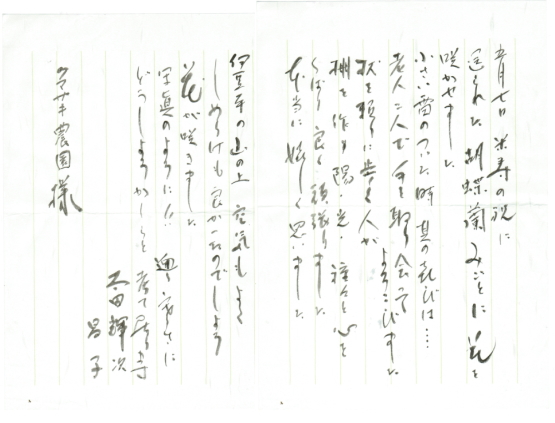 五月七日 米寿の祝に
送られた胡蝶蘭みごとに花を
咲かせました
小さい蕾のついた時其の喜びは……
老人二人で手を取り合って
よろこびました
杖を頼りに歩く人が
棚を作り陽・光・種々と心を
くばり良く頑張りました
本当に嬉しく思いました
伊豆半の山の上 空気もよく
しめりけも良かったのでしょう
花が咲きました
写真のように
どうしようかしらと考て居ます
太田輝次
昌子
クマサキ農園様